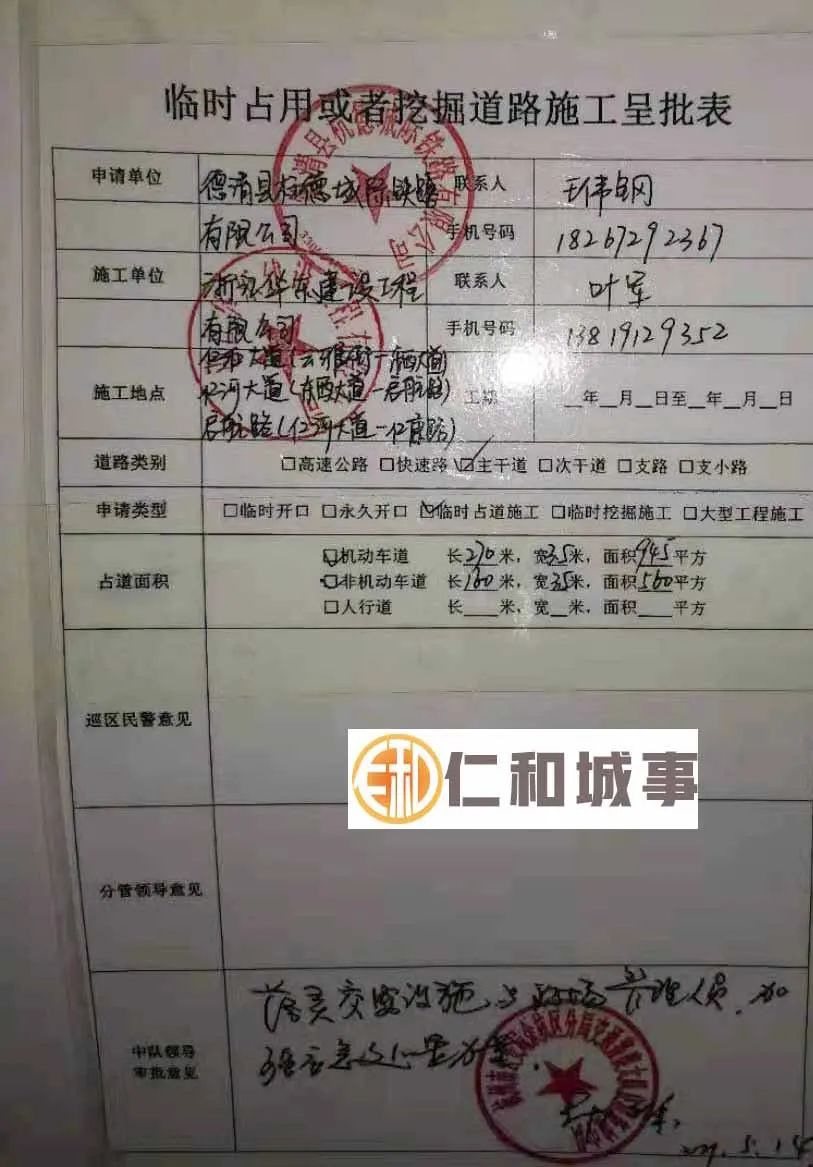 临时占用或者挖掘道路施工呈批表
申请单位 德清县杭德城际铁路 联系人 王伟钢
有限公司 手机号码 18267292367
施工单位 浙江华东建设工程 联系人 叶军
有限公司 手机号码 13819129352
仁和大道(云 街一东西大道)
施工地点 仁河大道(东西大道一启航路) 工期 __年__月__日至__年__月__日
启航路(仁河大道一仁 路)
道路类别 □高速公路 □快速路 ☑主干道 □次干道 □支路 □支小路
申请类型 □临时开口 □永久开口 ☑临时占道施工 □临时挖掘施工 □大型工程施工
☑机动车道 长270米，宽3.5米，面积945平方
占道面积 ☑非机动车道 长160米，宽3.5米，面积560平方
□人行道 长___米，宽__米，面积___平方
巡区民警意见
仁和城事
分管领导意见
落实交安设施 管理人员，加
强应急
中队领导
审批意见
2021.5.14